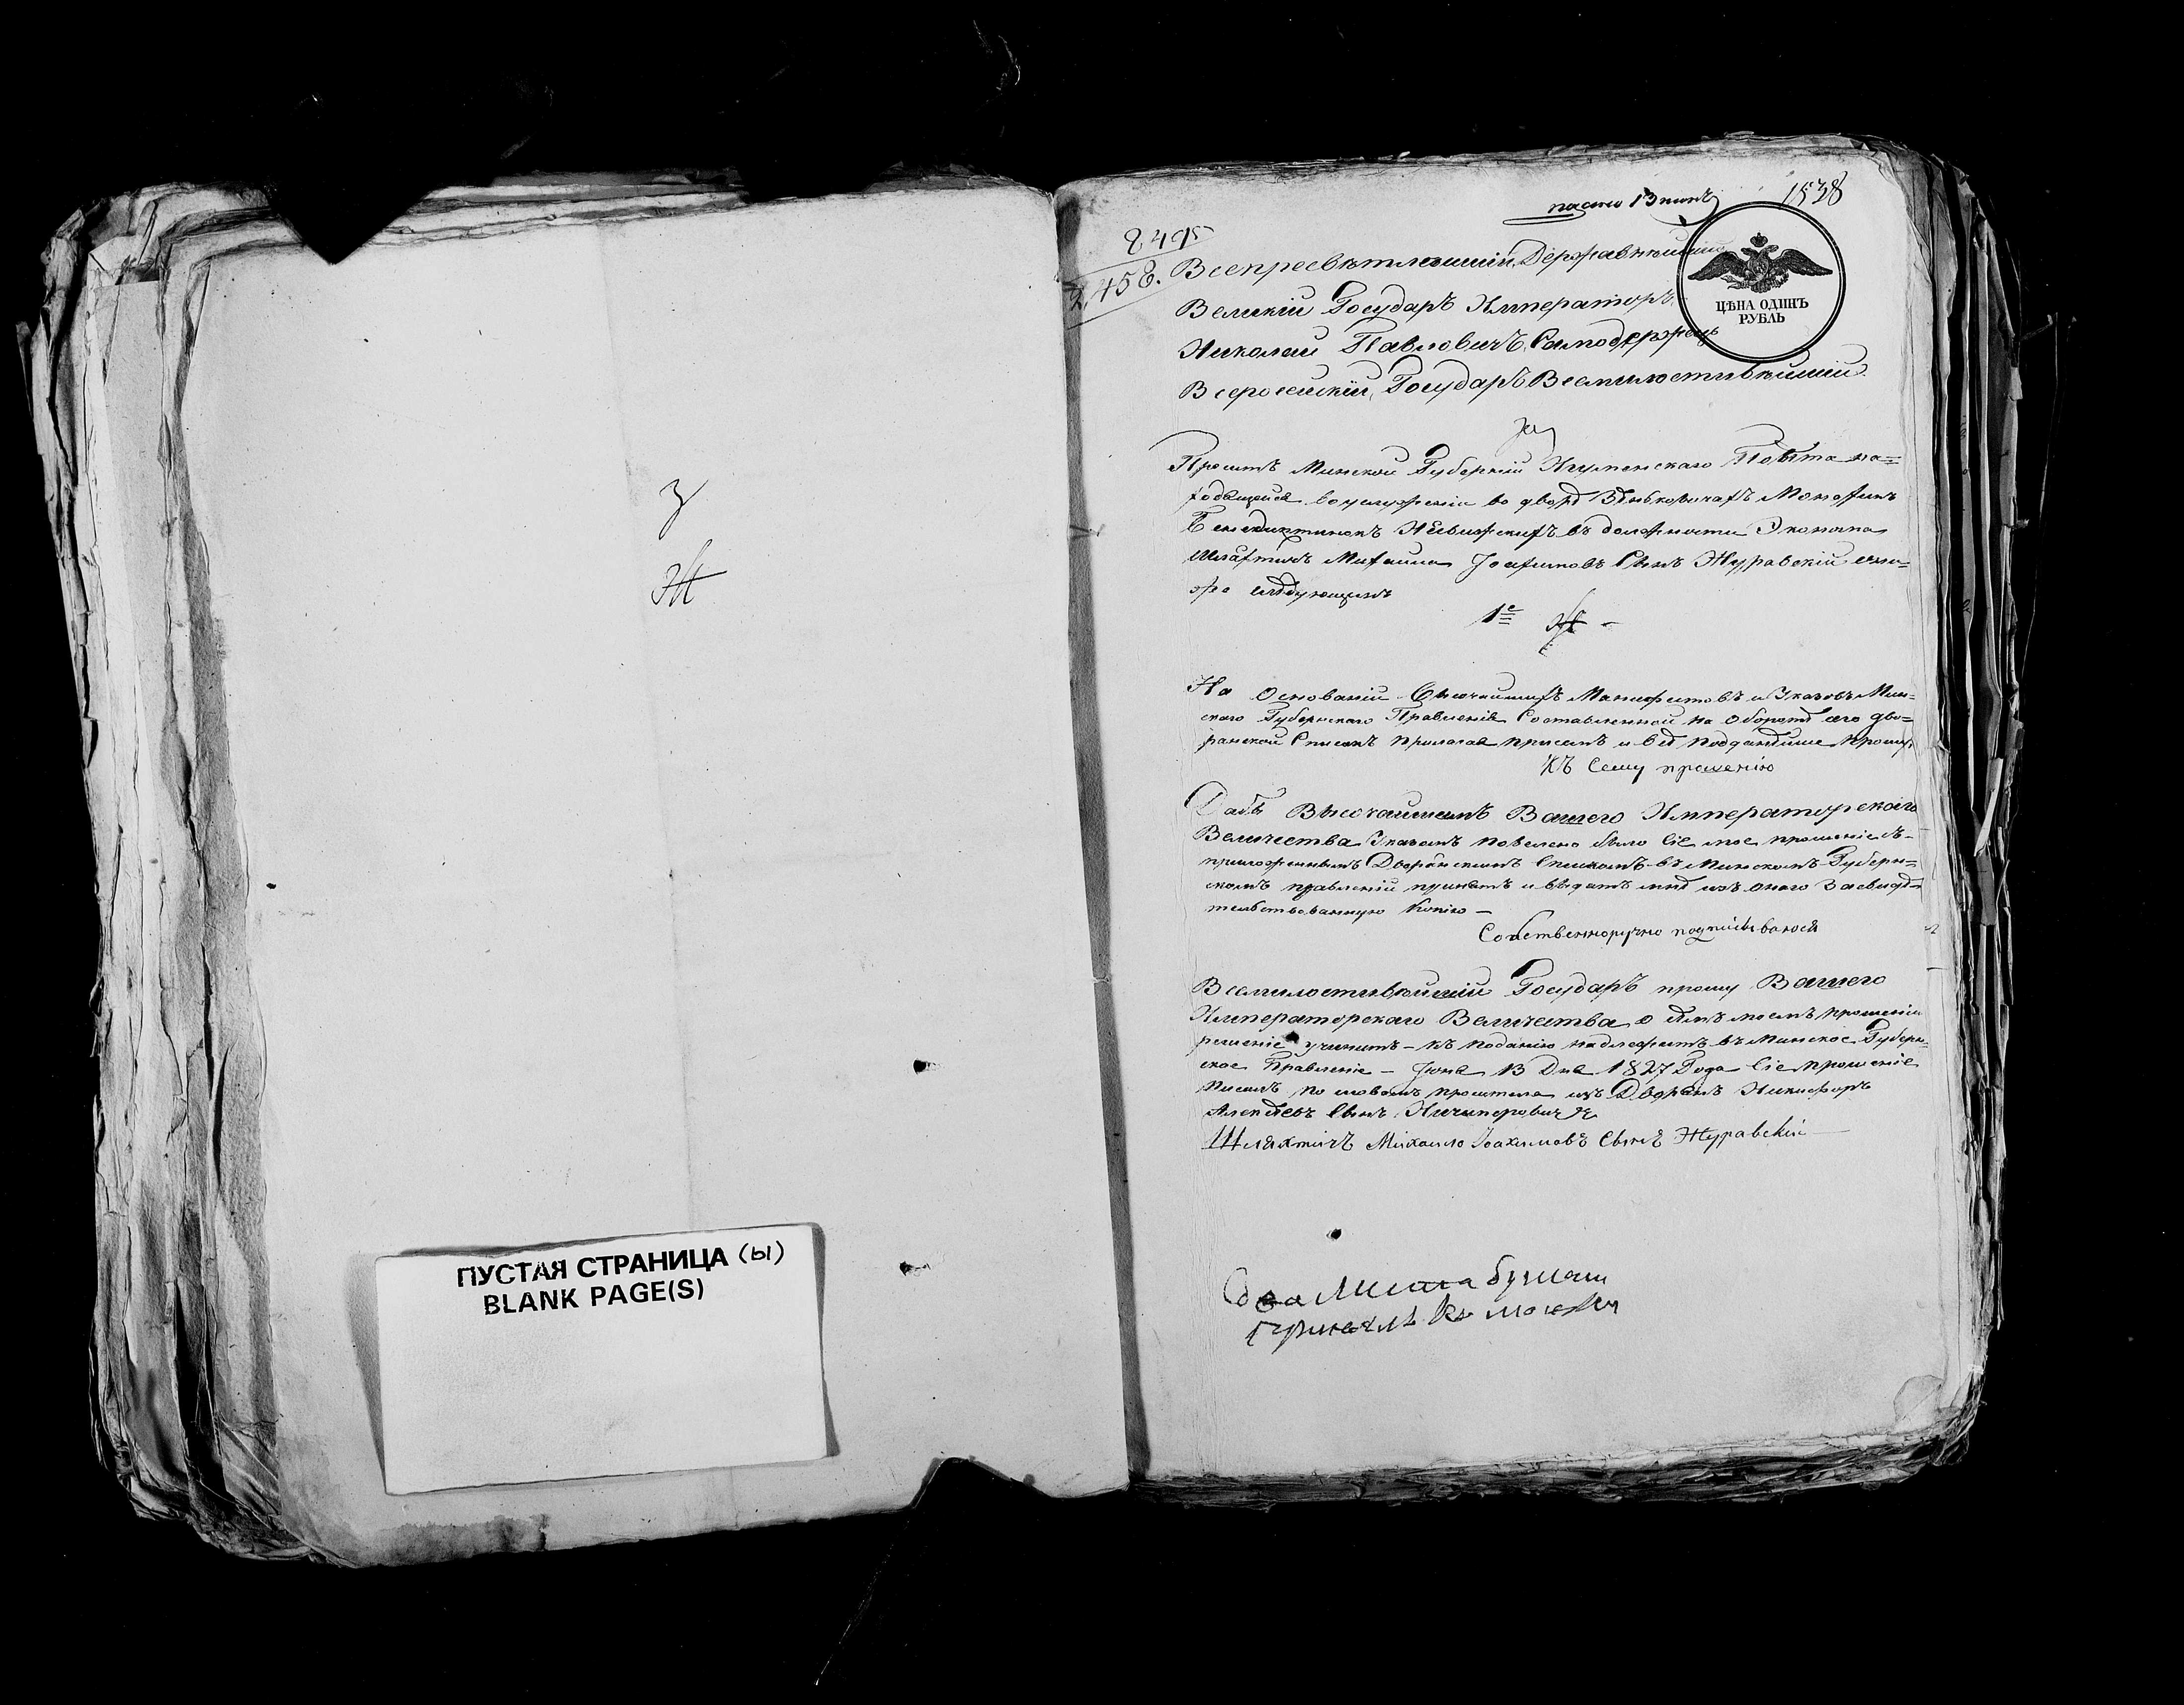 З
Ж
ПУСТАЯ СТРАНИЦА (ы)
BLANK PAGE(S)
13 1538
2495
2458.
Всепресвѣтлейший Державнѣйший
Великій Государь Императоръ
Николай Павловичъ Самодержецъ
Всероссійскій, Государь Всемилостивѣйшій
ЦѢНА ОДИНЪ
РУБЛЬ
Проситъ Минской Губерніи Игуменскаго Повѣта на=
ходящейся во дворѣ
Бенедиктинокъ Несвижскихъ въ должности Эконома
Шляхтичъ Михаила Іоахимовъ Сынъ Журавскій
слѣдующимъ
1е
На Основаніи Высочайшихъ Манифестовъ и Указовъ Мин=
скаго Губернскаго Правленія Составленной на Оборотѣ сего дво=
рянской Списокъ прилагая при семъ и всеподданѣйше прошу
Къ Сему прошению
Дабы Высочайшимъ Вашего Императорскаго
Величества Указомъ повелено было Сіе мое прошеніе съ
приложеннымъ Дворянскимъ Спискомъ въ Минскомъ Губерн=
скомъ правленіи принять и выдать мнѣ изъ онаго Засвидѣ
тельствованную Копію —
Собственноручно подписываюся
Всемилостивѣйшій Государь прошу Вашего
Императорскаго Величества о семъ моемъ прошеніи
решеніе учинить — къ поданію надлежитъ въ Минское Губерн=
ское Правленіе — Июня 13 Дня 1827 Года Сіе прошеніе
писалъ по словамъ просителя изъ Дворянъ Никифоръ
Алексѣевъ Сынъ Ничипоровичъ
Шляхтичъ Михаило Іоахимовъ Сынъ Журавскій
два Листа бумаги